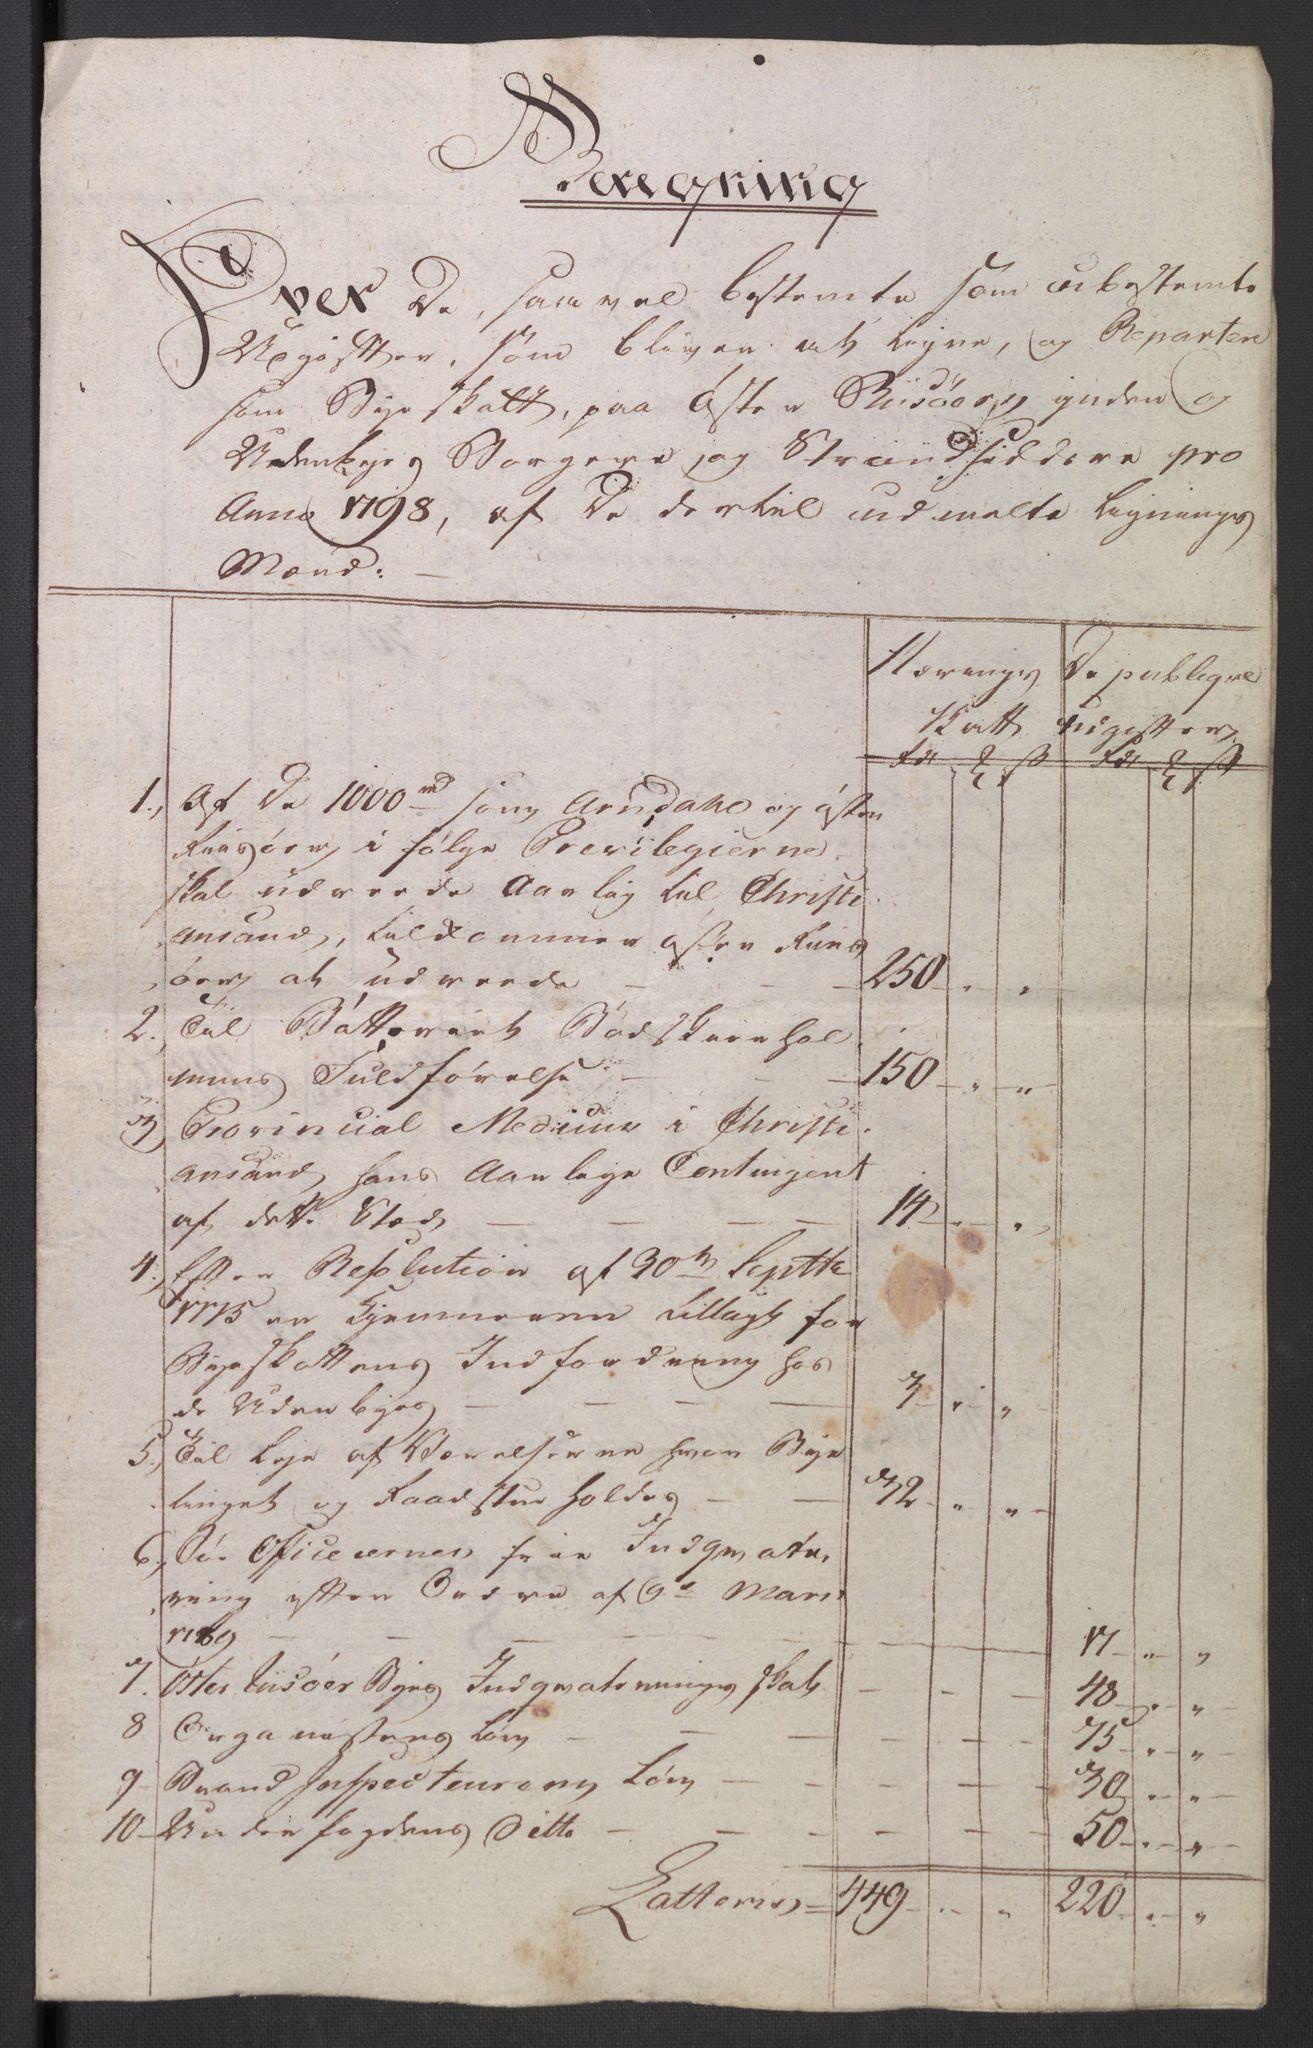 Beregning
Over De, saavel bestemte som ubestemte
Udgifter, som bliver at ligne, og Repartere
som Bye Skatt, paa Öster Riisöers inden og
Udenbyes Borgere og Strandsiddere pro
Anno 1798, af De dertil udmelte Lignings
Mænd:
Nærings De publique
Skatt Udgifter
rdr ß rdr ß
1., Af De 1000 rd som Arndahl og öster
Riisöer i følge Previlegierne
skal udreede Aarlig til Christi
ansand, tilkommer öster Riis
öer at udreede 250 " "
2., Til Batteriet Bödskiærhol
mens Fuldförelse 150 " "
3, Provincial Medicus i Christi
ansand, hans Aarlige Contingent
af dette Sted 14 " "
4, Efter Resolution af 30te Septbr
1775 er Kjemneren tillagt for
Byeskattens Indfordring hos
de Udenbyes 3 " "
5, Til Leje af Værelserne hvor Bye
tinget og Raadstue holdes 32 " "
6, Officeernes frie Indqvarte
ring efter Ordre af 9de Marti
1769 17 " "
7. Oster Riisöer Byes Indqvarterings skat 48 " "
8 Organistens Lön 75 " "
9 Brand Inspecteurens Lön 30 " "
10 Underfogdens Ditto 50 " "
Latteris = 449 " " 220 " "